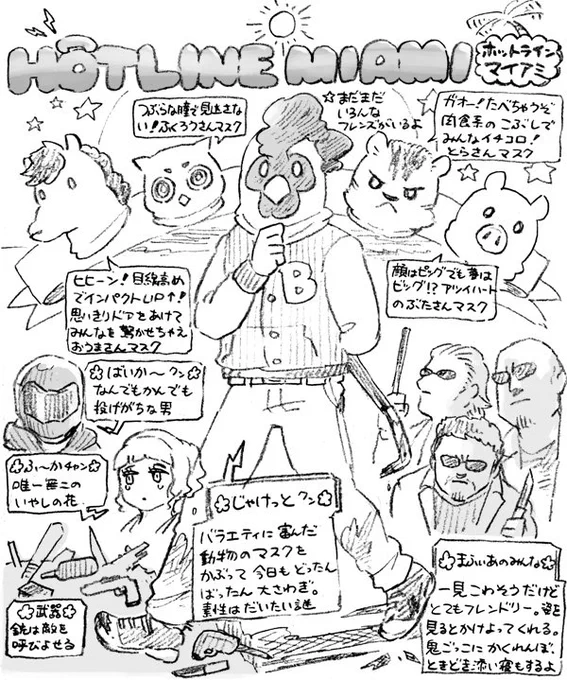 HOTLINE MIAMI
ホットライン
マイアミ
つぶらな瞳で見逃さな
い!ふくろうさんマスク
☆まだまだ
いろんな
フレンズがいるよ
ガオー!たべちゃうぞ
肉食系のこぶしで
みんなイチコロ!
とらさんマスク
ヒヒーン!目線高め
でインパクトUP↑!
思いきりドアをあけて
みんなを驚かせちゃえ
おうまさんマスク
顔はピッグでも夢は
ビッグ!?アツイハート
のぶたさんマスク
B
ばいか〜クン
なんでもかんでも
投げがちな男
ふぃ〜かチャン
唯一無二の
いやしの花
じゃけっとクン
バラエティに富んだ
動物のマスクを
かぶって今日もどったん
ばったん大さわぎ。
素性はだいたい謎
武器
銃は敵を
呼びよせる
まふぃあのみんな
一見こわそうだけど
とてもフレンドリー。姿を
見るとかけよってくれる。
鬼ごっこにかくれんぼ、
ときどき添い寝もするよ